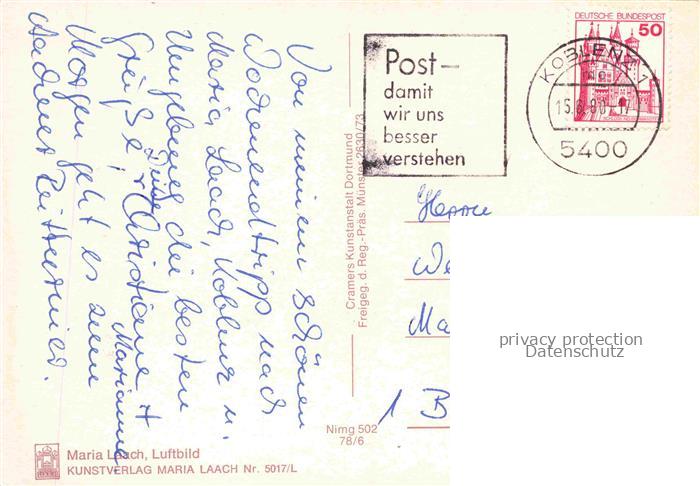 Von meinem schönen
Wochenendtripp nach
Maria Laach, Koblenz u.
Umgebung die besten
Grüße Dir
+ Christiane +
Marianne
Morgen geht es zum
Aachener Reitturnier.
Post-
damit
wir uns
besser
verstehen
DEUTSCHE BUNDESPOST
50
KOBLENZ 1
mc
15.6.80-17
5400
Herrn
We
Ma
1 B
privacy protection
Datenschutz
Cramers Kunstanstalt Dortmund
Freigeg. d. Reg.-Präs. Münster 2630/73
Nimg 502
78/6
Maria Laach, Luftbild
KUNSTVERLAG MARIA LAACH Nr. 5017/L